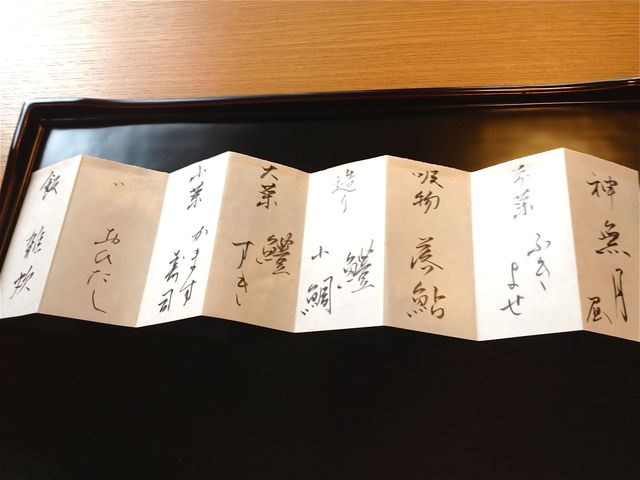 神無月
昼
前菜
ふき
よせ
吸物
落鮎
造り
鱧
小鯛
大菜
鱧
すき
小菜
かます
寿司
〃
おひたし
飯
雑炊